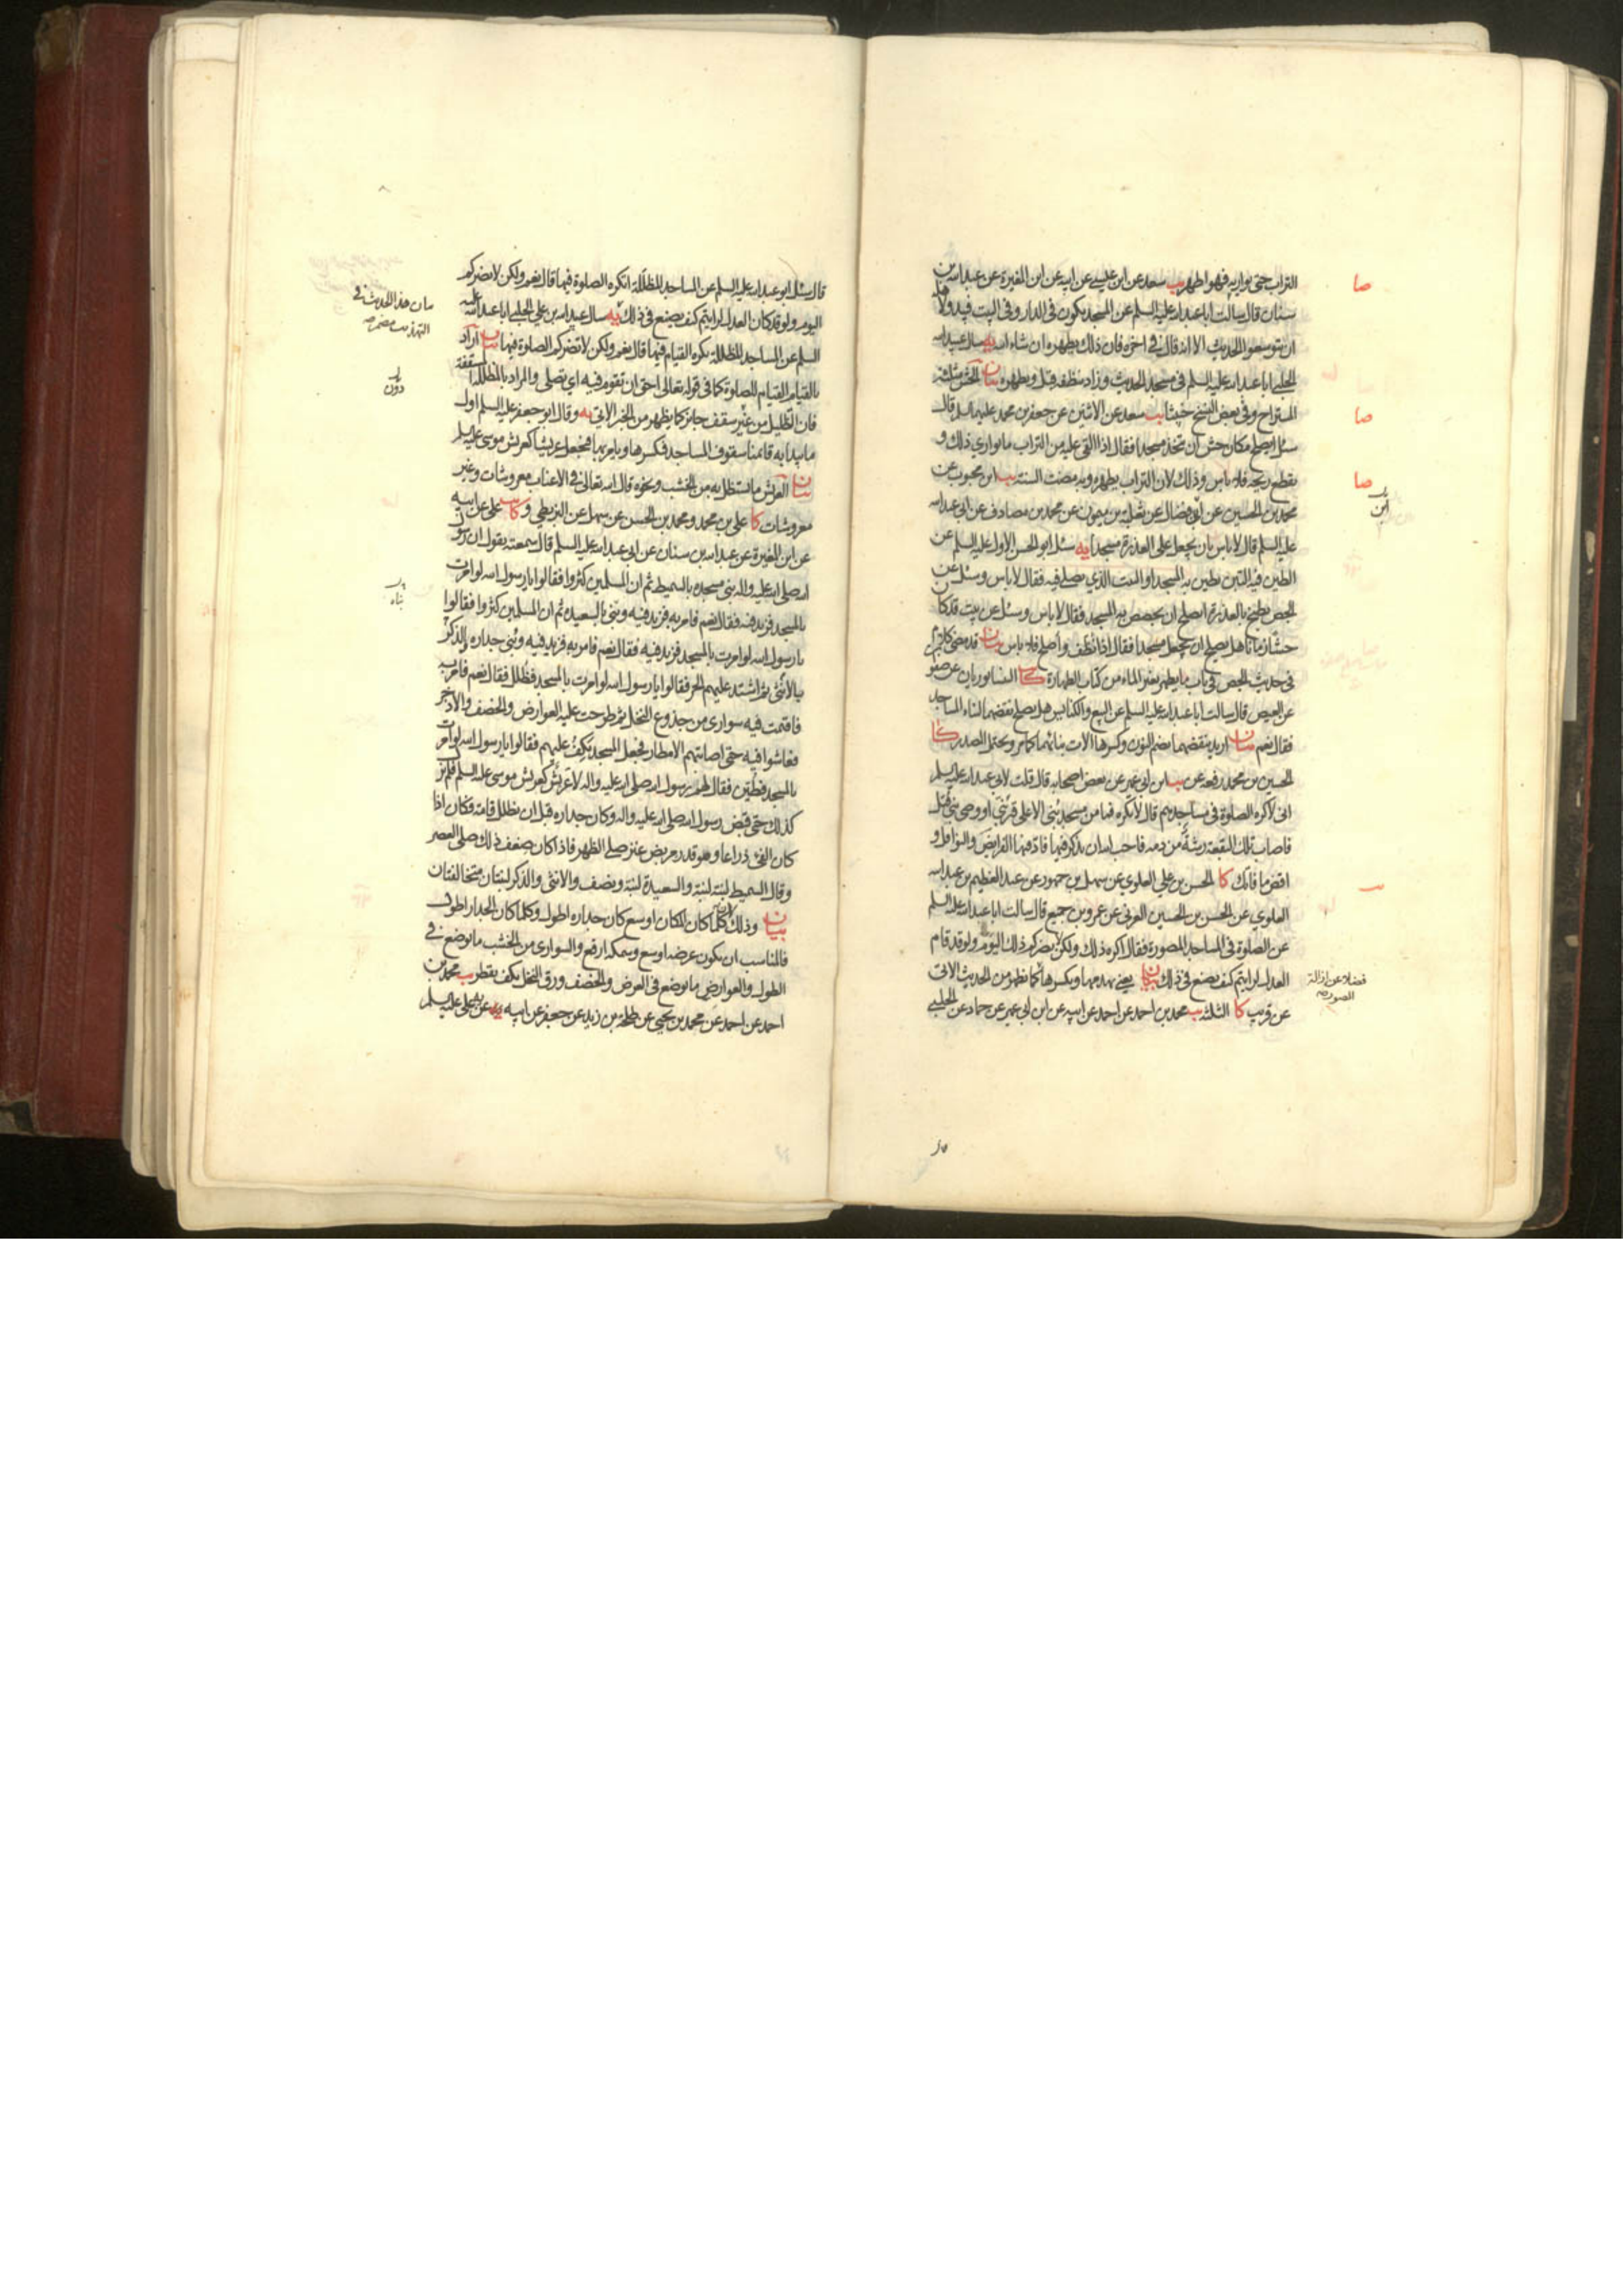 التراب حتى يواريه فهو اطهر يب سعد عن ابن عيسى عن ابيه عن ابن المغيرة عن عبدالله بن
سنان قال سألت ابا عبدالله عليه السلم عن المسجد يكون فى الدار وفى البيت فيبدو لاهله
ان يتوسعوا الحديث الا انه قال فى اخره فان ذلك يطهره ان شاء الله يه سال عبيدالله
الحلبى ابا عبدالله عليه السلم فى مسجد الحديث وزاد ينظفه قبل ويطهره بيان الحش مثلثة
المستراح وفى بعض النسخ خبيثا يب سعد عن الاثنين عن جعفر بن محمد عليهما السلم قال
سئل ايصلح مكان حش ان يتخذ مسجدا فقال اذا القى عليه من التراب ما يوارى ذلك و
يقطع ريحه فلا باس وذلك لان التراب يطهره وبه مضت السنة يب ابن محبوب عن
محمد بن الحسين عن ابى فضال عن ثعلبة بن ميمون عن محمد بن مصادف عن ابى عبدالله
عليه السلم قال لا باس بان يجعل على العذرة مسجدا يه سئل ابو الحسن الاول عليه السلم عن
الطين فيه التبن يطين به المسجد او البيت الذي يصلى فيه فقال لا باس وسئل عن
الجص يطبخ بالعذرة ايصلح ان يجصص به المسجد فقال لا باس وسئل عن بيت قد كان
حشا زمانا هل يصلح ان يجعل مسجدا فقال اذا نظف واصلح فلا باس بيان قد مضى كلام
فى حديث الجص فى باب ما يطهر بغير الماء من كتاب الطهارة كا النيسابوريان عن صفوان
عن العيص قال سالت ابا عبدالله عليه السلم عن البيع والكنايس هل يصلح نقضهما لبناء المساجد
فقال نعم بيان اريد بنقضهما بضم النون وكسرها الات بنائهما كما مر ويحتمل المصدر كا
الحسين بن محمد رفعه عن يب ابن ابى عمير عن بعض اصحابه قال قلت لابى عبدالله عليه السلم
انى لاكره الصلوة فى مساجدهم قال لا تكره فما من مسجد بنى الا على قبر نبى او وصى نبى قتل
فاصاب تلك البقعة رشة من دمه فاحب الله ان يذكر فيها فاد فيها الفرايض والنوافل و
اقض ما فاتك كا الحسن بن علي العلوي عن سهل بن جمهور عن عبد العظيم بن عبدالله
العلوي عن الحسن بن الحسين العرنى عن عمرو بن جميع قال سالت ابا عبدالله عليه السلم
عن الصلوة فى المساجد المصورة فقال اكره ذلك ولكن لا يضركم ذلك اليوم ولو قد قام
العدل لرايتم كيف يصنع فى ذلك بيان يعنى يهدمها ويكسرها كما يظهر من الحديث الاتى
عن قريب كا الثلثة يب محمد بن احمد عن احمد عن ابيه عن ابن ابى عمير عن حماد عن الحلبى
صا
صا
صا
ابن
فضلا عن ازالة
الصور صه
قال سئل ابو عبدالله عليه السلم عن المساجد المظللة اتكره الصلوة فيها قال نعم ولكن لا يضركم
اليوم ولو قد كان العدل لرايتم كيف يصنع فى ذلك يه سال عبيدالله بن على الحلبى ابا عبدالله عليه
السلم عن المساجد المظللة يكره القيام فيها قال نعم ولكن لا تضركم الصلوة فيها بيان اراد
بالقيام القيام للصلوة كما فى قوله تعالى احق ان تقوم فيه اي تصلى والمراد بالمظللة المسقفة
فان التظليل من غير سقف جايز كما يظهر من الخبر الاتى يه وقال ابو جعفر عليه السلم اول
ما يبدا به قائمنا سقوف المساجد فكسرها ويامر بها فيجعل عريشا كعريش موسى عليه السلم
بيان العرش ما يستظل به من الخشب ونحوه قال الله تعالى فى الاعناب معروشات وغير
معروشات كا على بن محمد ومحمد بن الحسن عن سهل عن البزنطى و كا يب على عن ابيه
عن ابن المغيرة عن عبدالله بن سنان عن ابى عبدالله عليه السلم قال سمعته يقول ان رسول
الله صلى الله عليه واله بنى مسجده بالسميط ثم ان المسلمين كثروا فقالوا يا رسول الله لو امرت
بالمسجد فزيد فيه فقال نعم فامر به فزيد فيه وبنى بالسعيدة ثم ان المسلمين كثروا فقالوا
يا رسول الله لو امرت بالمسجد فزيد فيه فقال نعم فامر به فزيد فيه وبنى جداره بالذكر
بالانثى ثم اشتد عليهم الحر فقالوا يا رسول الله لو امرت بالمسجد فظلل فقال نعم فامر به
فاقيمت فيه سوارى من جذوع النخل ثم طرحت عليه العوارض والخصف والاذخر
فعاشوا فيه حتى اصابتهم الامطار فجعل المسجد يكف عليهم فقالوا يا رسول الله لو امرت
بالمسجد فطين فقال لهم رسول الله صلى الله عليه واله لا عريش كعريش موسى عليه السلم فلم يزل
كذلك حتى قبض رسول الله صلى الله عليه واله وكان جداره قبل ان يظلل قامة فكان اذا
كان الفئ ذراعا وهو قدر مربض عنز صلى الظهر فاذا كان ضعف ذلك صلى العصر
وقال السميط لبنة لبنة والسعيدة لبنة ونصف والانثى والذكر لبنتان متخالفتان
بيان وذلك لانه كلما كان المكان اوسع كان جداره اطول وكلما كان الجدار اطول
فالمناسب ان يكون عرضه اوسع وسمكه ارفع والسوارى من الخشب ما يوضع فى
الطول والعوارض ما يوضع فى العرض والخصف ورق النخل يكف يقطر يب محمد بن
احمد عن احمد عن محمد بن يحيى عن طلحة بن زيد عن جعفر عن ابيه يه عن على عليه السلم
بيان هذا الحديث فى
التهذيب مضمر صه
بناه